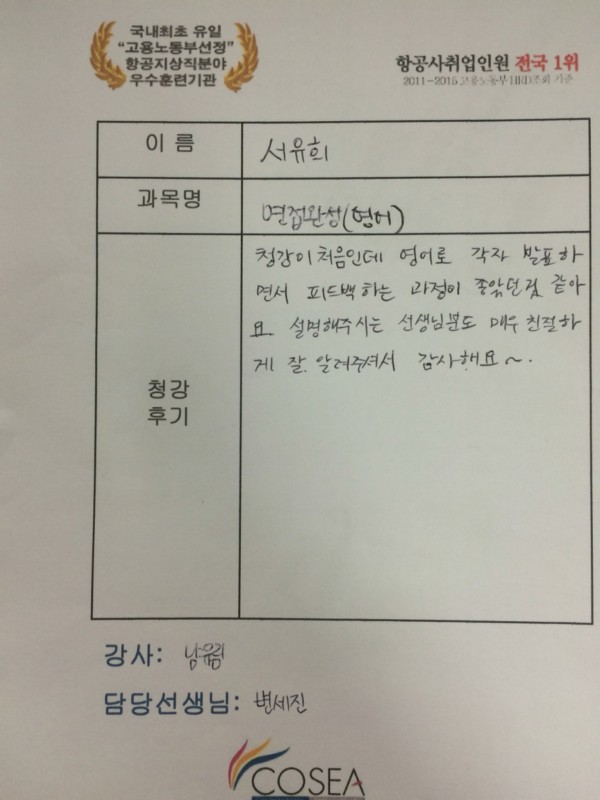 국내최초 유일
“고용노동부선정”
항공지상직분야
우수훈련기관
항공사취업인원 전국 1위
2011-2015 고용노동부 HRD조회 기준
이 름
서유희
과목명
면접완성(영어)
청강이 처음인데 영어로 각자 발표하
면서 피드백하는 과정이 좋았던것 같아
요. 설명해주시는 선생님분도 매우 친절하
게 잘 알려주셔서 감사해요~.
청강
후기
강사: 남유림
담당선생님: 변세진
COSEA